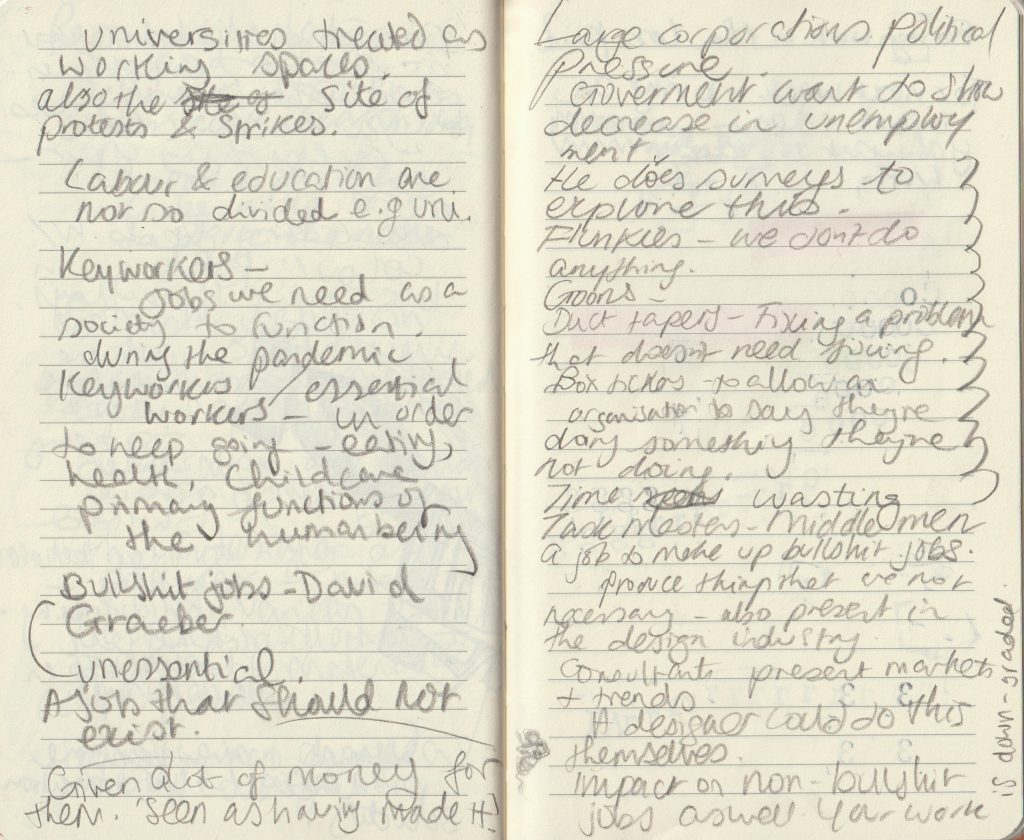 universities treated as
working spaces.
also the site of site of
protests & Sprikes.
Labour & education are
not so divided e.g uni.
Keyworkers –
Jobs we need as a
society to function.
during the pandemic
Keyworkers / essential
workers – in order
to keep going – eating,
health, childcare
primary functions of
the human being
Bullshit jobs – David
Graeber.
unessential.
A jobs that should not
exist.
Given alot of money for
them. 'seen as having made it'
Large corporations. political
pressure.
Goverment want to show
decrease in unemploy
ment.
He does surveys to
explore this.
Flunkies – we don't do
anything.
Goons –
Duct tapers – Fixing a problem
that doesn't need fixing.
Box tickers – to allow an
organisation to say they're
doing something they're
not doing.
Time wasting
Task Masters – Middle men
a job to make up bullshit jobs.
produce things that are not
necessary – also present in
the design industry.
Consultants present markets
+ trends.
A designer could do this
themselves.
Impact on non-bullshit
jobs aswell your work
is down-graded.